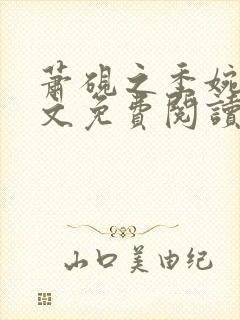 蕭硯之季婉
文免費閱讀
山口美由纪